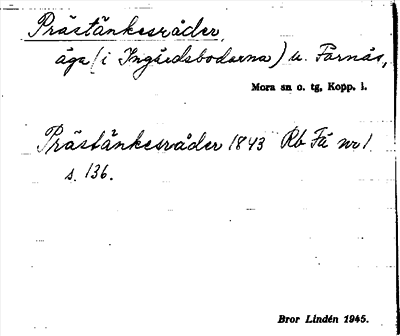 Prästänkesråder,
äga (i Ingärdsbodarna) u. Färnäs,
Mora sn o. tg, Kopp. l.
Prästänkesråder 1843 Rb Fä nr 1
s. 136.
Bror Lindén 1945.